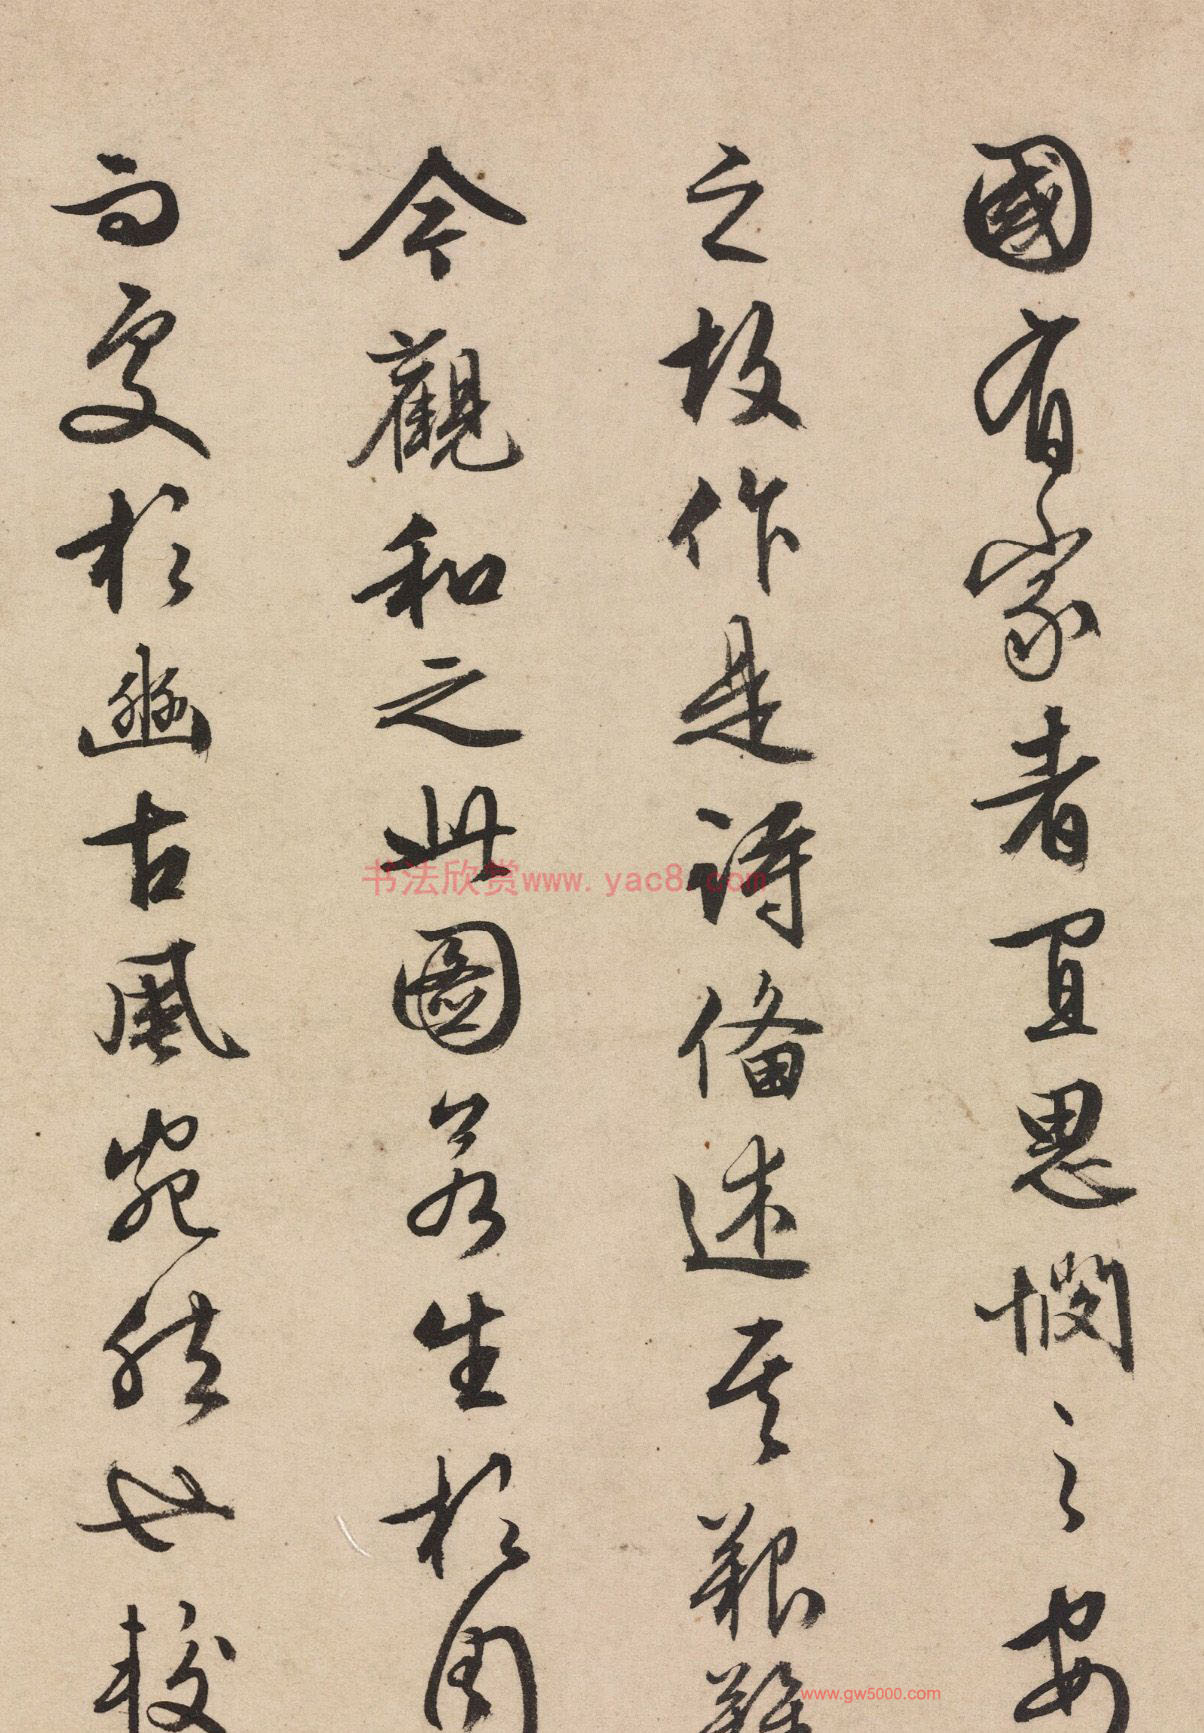 國有家者宜思憫之安
之故作是詩備述其艱難
今觀和之此圖若生於周
而處於豳古風宛然世
书法欣赏www.yac8.com
www.gw5000.com